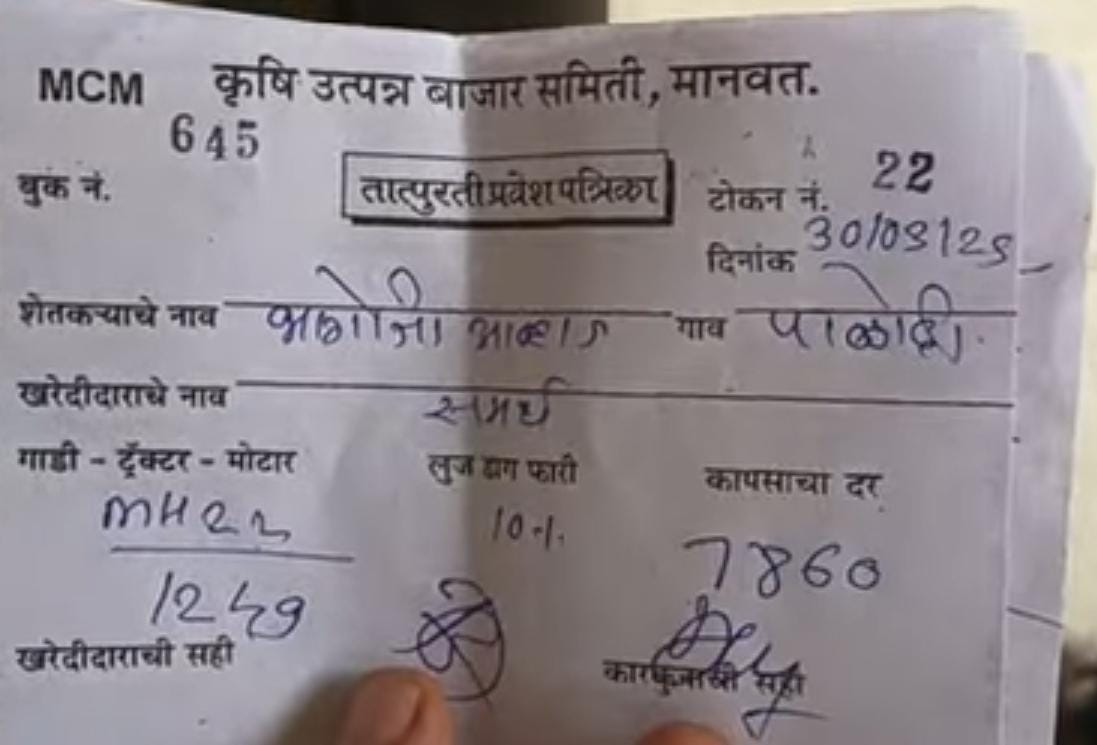 MCM कृषि उत्पन्न बाजार समिती, मानवत.
645
बुक नं. तात्पुरती प्रवेश पत्रिका टोकन नं. 22
दिनांक 30/09/25
शेतकऱ्याचे नाव गाव
खरेदीदाराचे नाव समर्थ
गाडी - ट्रॅक्टर - मोटार लुज डाग फारी कापसाचा दर
MH22 10% 7860
1249
खरेदीदाराची सही कारकुनाची सही